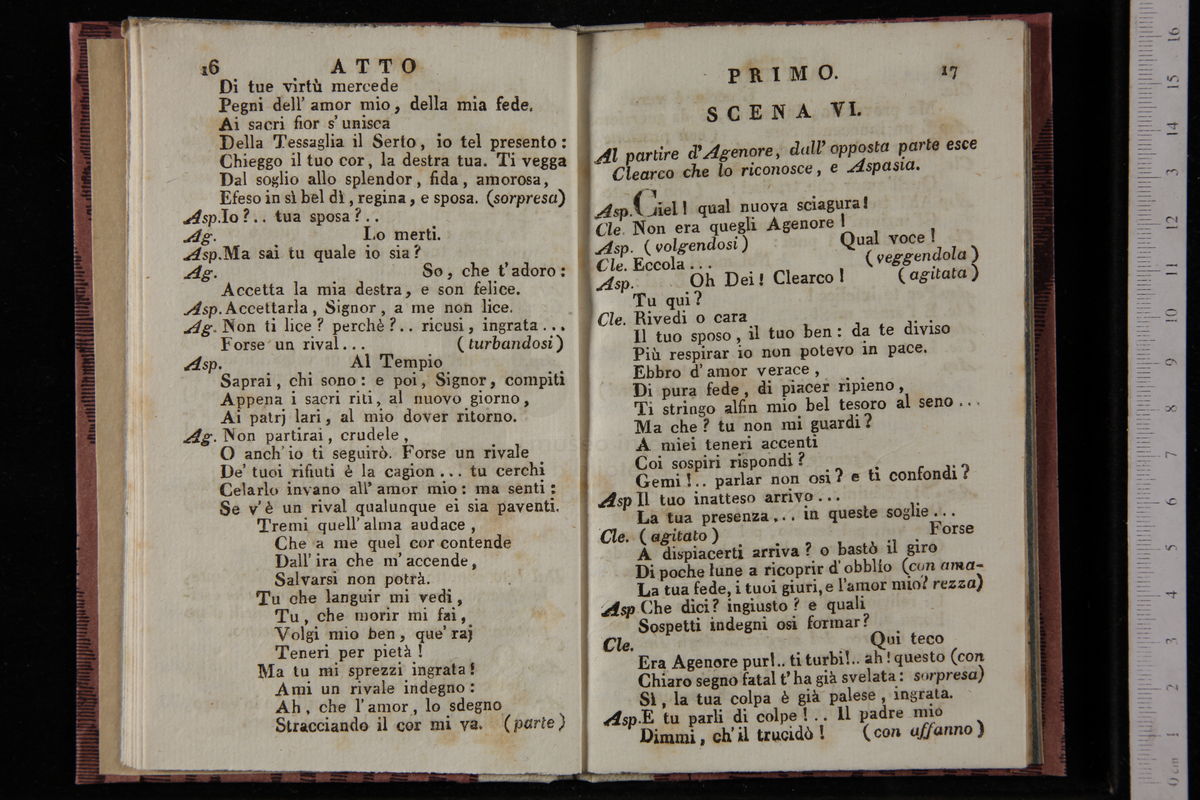 16 ATTO
Di tue virtù mercede
Pegni dell' amor mio, della mia fede.
Ai sacri fior s' unisca
Della Tessaglia il Serto, io tel presento:
Chieggo il tuo cor, la destra tua. Ti vegga
Dal soglio allo splendor, fida, amorosa,
Efeso in sì bel dì, regina, e sposa. (sorpresa)
Asp.Io?.. tua sposa?..
Ag. Lo merti.
Asp.Ma sai tu quale io sia?
Ag. So, che t'adoro:
Accetta la mia destra, e son felice.
Asp.Accettarla, Signor, a me non lice.
Ag. Non ti lice? perchè?.. ricusi, ingrata...
Forse un rival... (turbandosi)
Asp. Al Tempio
Saprai, chi sono: e poi, Signor, compiti
Appena i sacri riti, al nuovo giorno,
Ai patrj lari, al mio dover ritorno.
Ag. Non partirai, crudele,
O anch'io ti seguirò. Forse un rivale
De' tuoi rifiuti è la cagion... tu cerchi
Celarlo invano all' amor mio: ma senti:
Se v'è un rival qualunque ei sia paventi.
Tremi quell' alma audace,
Che a me quel cor contende
Dall' ira che m' accende,
Salvarsi non potrà.
Tu che languir mi vedi,
Tu, che morir mi fai,
Volgi mio ben, que' raj
Teneri per pietà!
Ma tu mi sprezzi ingrata!
Ami un rivale indegno:
Ah, che l'amor, lo sdegno
Stracciando il cor mi va. (parte)
PRIMO. 17
SCENA VI.
Al partire d'Agenore, dall' opposta parte esce
Clearco che lo riconosce, e Aspasia.
Asp.Ciel! qual nuova sciagura!
Cle. Non era quegli Agenore!
Asp. (volgendosi) Qual voce!
Cle. Eccola... (veggendola)
Asp. Oh Dei! Clearco! (agitata)
Tu qui?
Cle. Rivedi o cara
Il tuo sposo, il tuo ben: da te diviso
Più respirar io non potevo in pace.
Ebbro d'amor verace,
Di pura fede, di piacer ripieno,
Ti stringo alfin mio bel tesoro al seno...
Ma che? tu non mi guardi?
A miei teneri accenti
Coi sospiri rispondi?
Gemi!.. parlar non osi? e ti confondi?
Asp Il tuo inatteso arrivo...
La tua presenza... in queste soglie...
Cle. (agitato) Forse
A dispiacerti arriva? o bastò il giro
Di poche lune a ricoprir d'obblìo (con ama-
La tua fede, i tuoi giuri, e l'amor mio? rezza)
Asp Che dici? ingiusto? e quali
Sospetti indegni osi formar?
Cle. Qui teco
Era Agenore pur!.. ti turbi!.. ah! questo (con
Chiaro segno fatal t'ha già svelata: sorpresa)
Sì, la tua colpa è già palese, ingrata.
Asp.E tu parli di colpe!.. Il padre mio
Dimmi, ch'il trucidò! (con affanno)